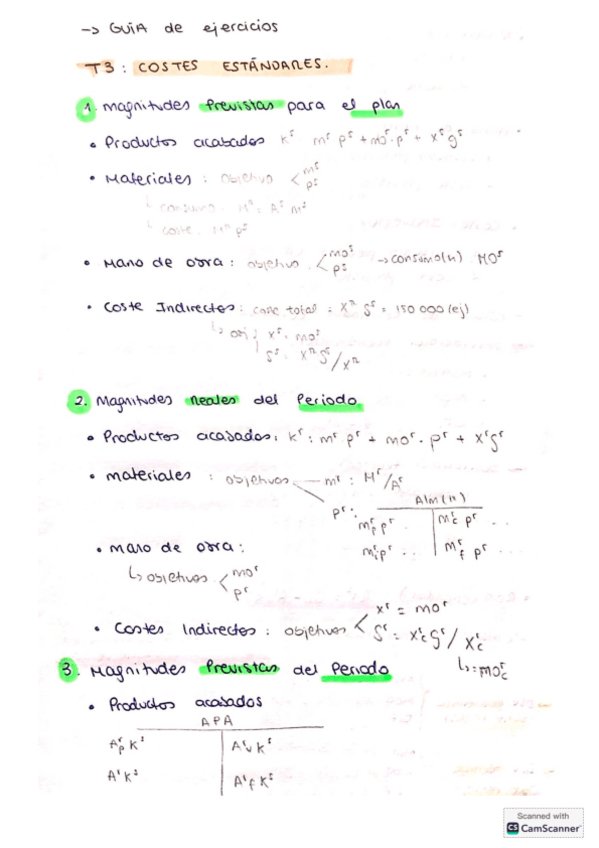 -> GUÍA de ejercicios
T3: COSTES ESTÁNDARES.
1. Magnitudes Previstas para el plan
• Productos acabados kˢ mˢ pˢ + moˢ·pˢ + xˢ gˢ
• Materiales : objetivo < mˢ pˢ
↳ consumo
↳ coste
• Mano de obra : objetivo < moˢ pˢ -> consumo(n) MOˢ
• Coste Indirectos : coste total : Xⁿ Sˢ = 150 000 (ej)
↳ obj : xˢ · moˢ
Sˢ : Xⁿ Sˢ / Xⁿ
2. Magnitudes Reales del Periodo
• Productos acabados : kʳ : mʳ pʳ + moʳ · pʳ + xʳ gʳ
• materiales : objetivos — mʳ : Mʳ/Aʳ
Alm (n)
pʳ :
• mano de obra :
↳ objetivos < moʳ pʳ
• Costes Indirectos : objetivos < xʳ = moʳ
3. Magnitudes Previstas del Periodo
• Productos acabados
APA
Scanned with
CS CamScanner